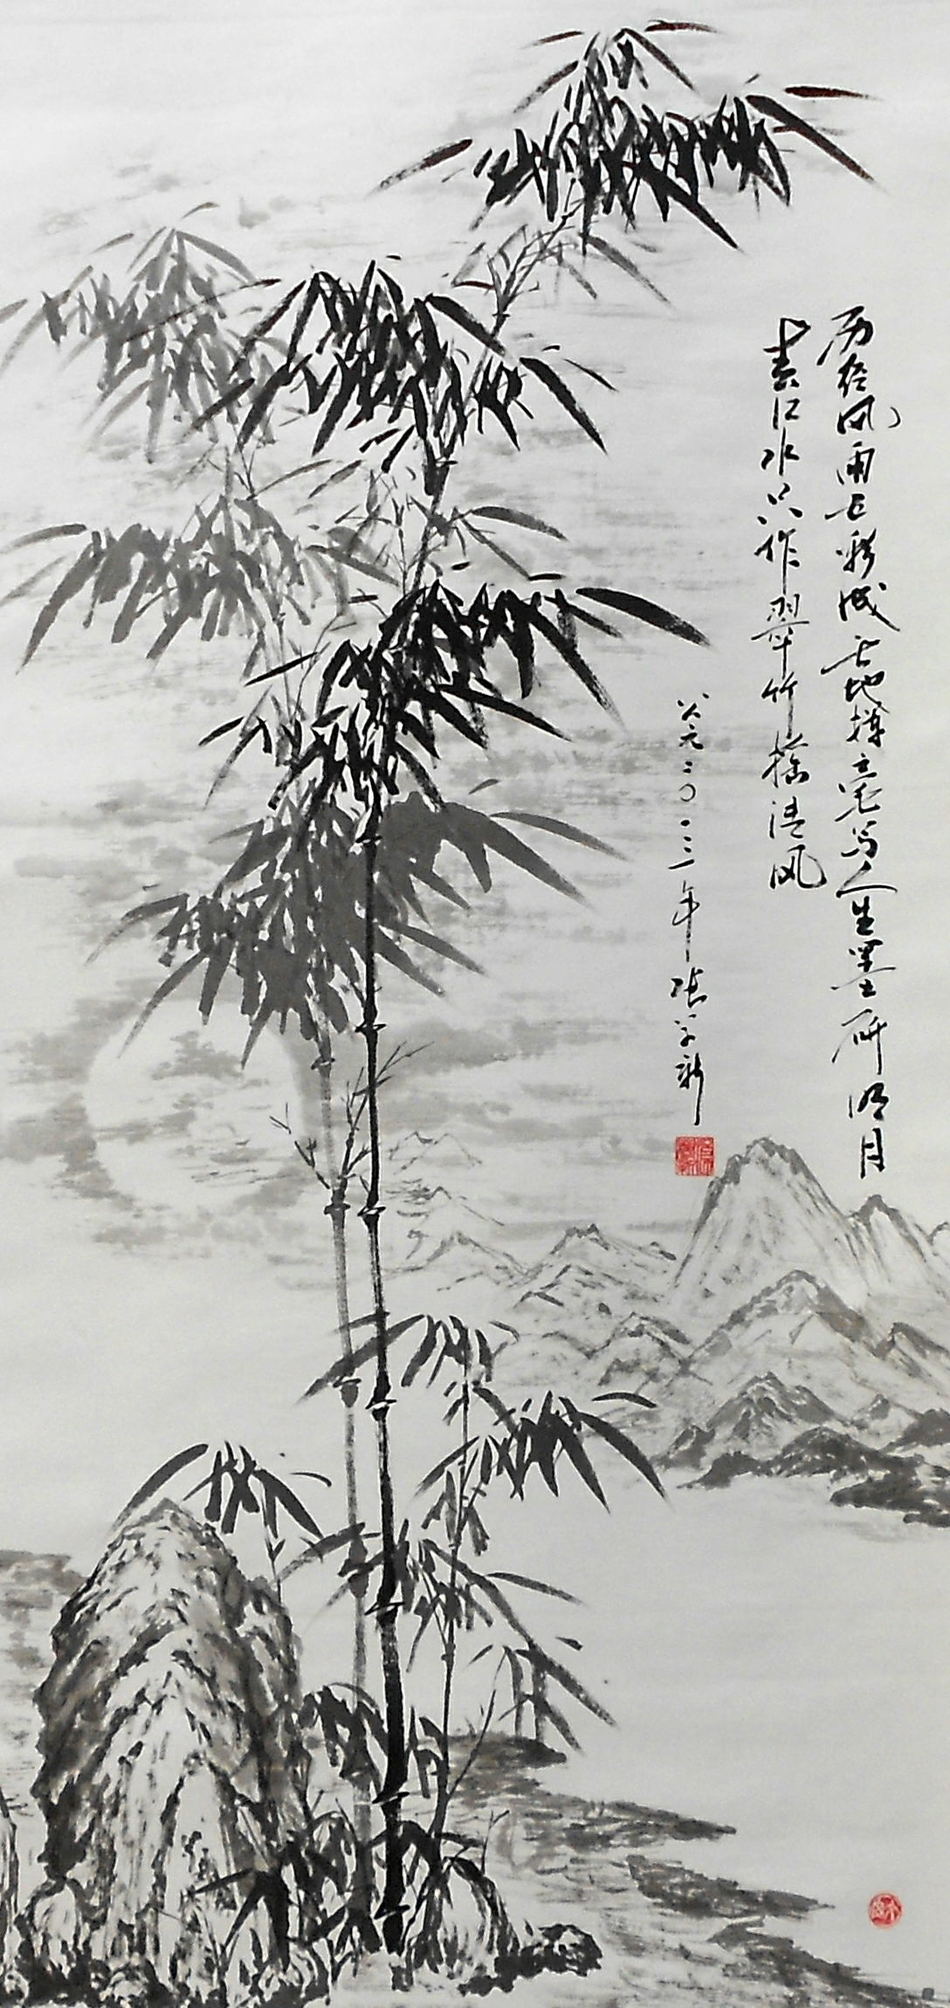 历经风雨五彩成 天地挥毫写人生 墨研明月
春江水 只作翠竹摇清风
公元二〇一三年 张学新